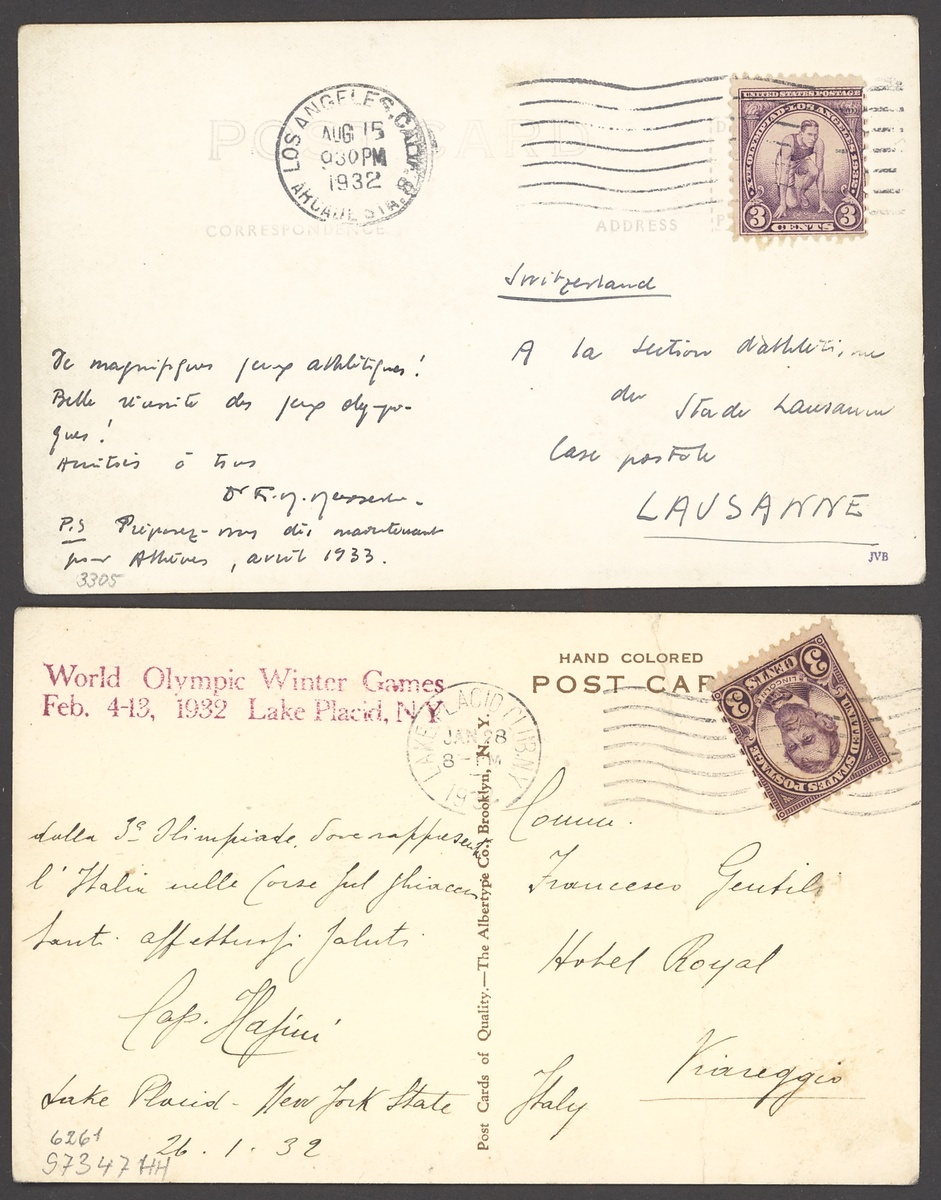 POST CARD
LOS ANGELES, CALIF.
AUG 15
930 PM
1932
ARCADE STA.
UNITED STATES POSTAGE
Xth OLYMPIAD · LOS ANGELES 1932
3 3
CENTS
CORRESPONDENCE
ADDRESS
Switzerland
De magnifiques jeux athlétiques!
Belle réussite des jeux olympi-
ques!
Amitiés à tous
Dr F. M.
P.S Préparez-vous dès maintenant
pour Athènes, avril 1933.
3305
A la section d'athlétisme
du Stade Lausanne
Case postale
LAUSANNE
JVB
World Olympic Winter Games
Feb. 4-13, 1932 Lake Placid, N.Y.
LAKE PLACID CLUB, N.Y.
JAN 28
8 - PM
193
HAND COLORED
POST CAR
UNITED STATES POSTAGE
LINCOLN
3 CENTS 3
dalla 3a Olimpiade, dove rappresento
l'Italia nelle Corse sul ghiaccio
tanti affettuosi saluti
Cap.
Lake Placid - New York State
26 . 1 . 32
6261
97347 HH
Post Cards of Quality.—The Albertype Co., Brooklyn, N. Y.
Comm.
Francesco Gentili
Hotel Royal
Viareggio
Italy